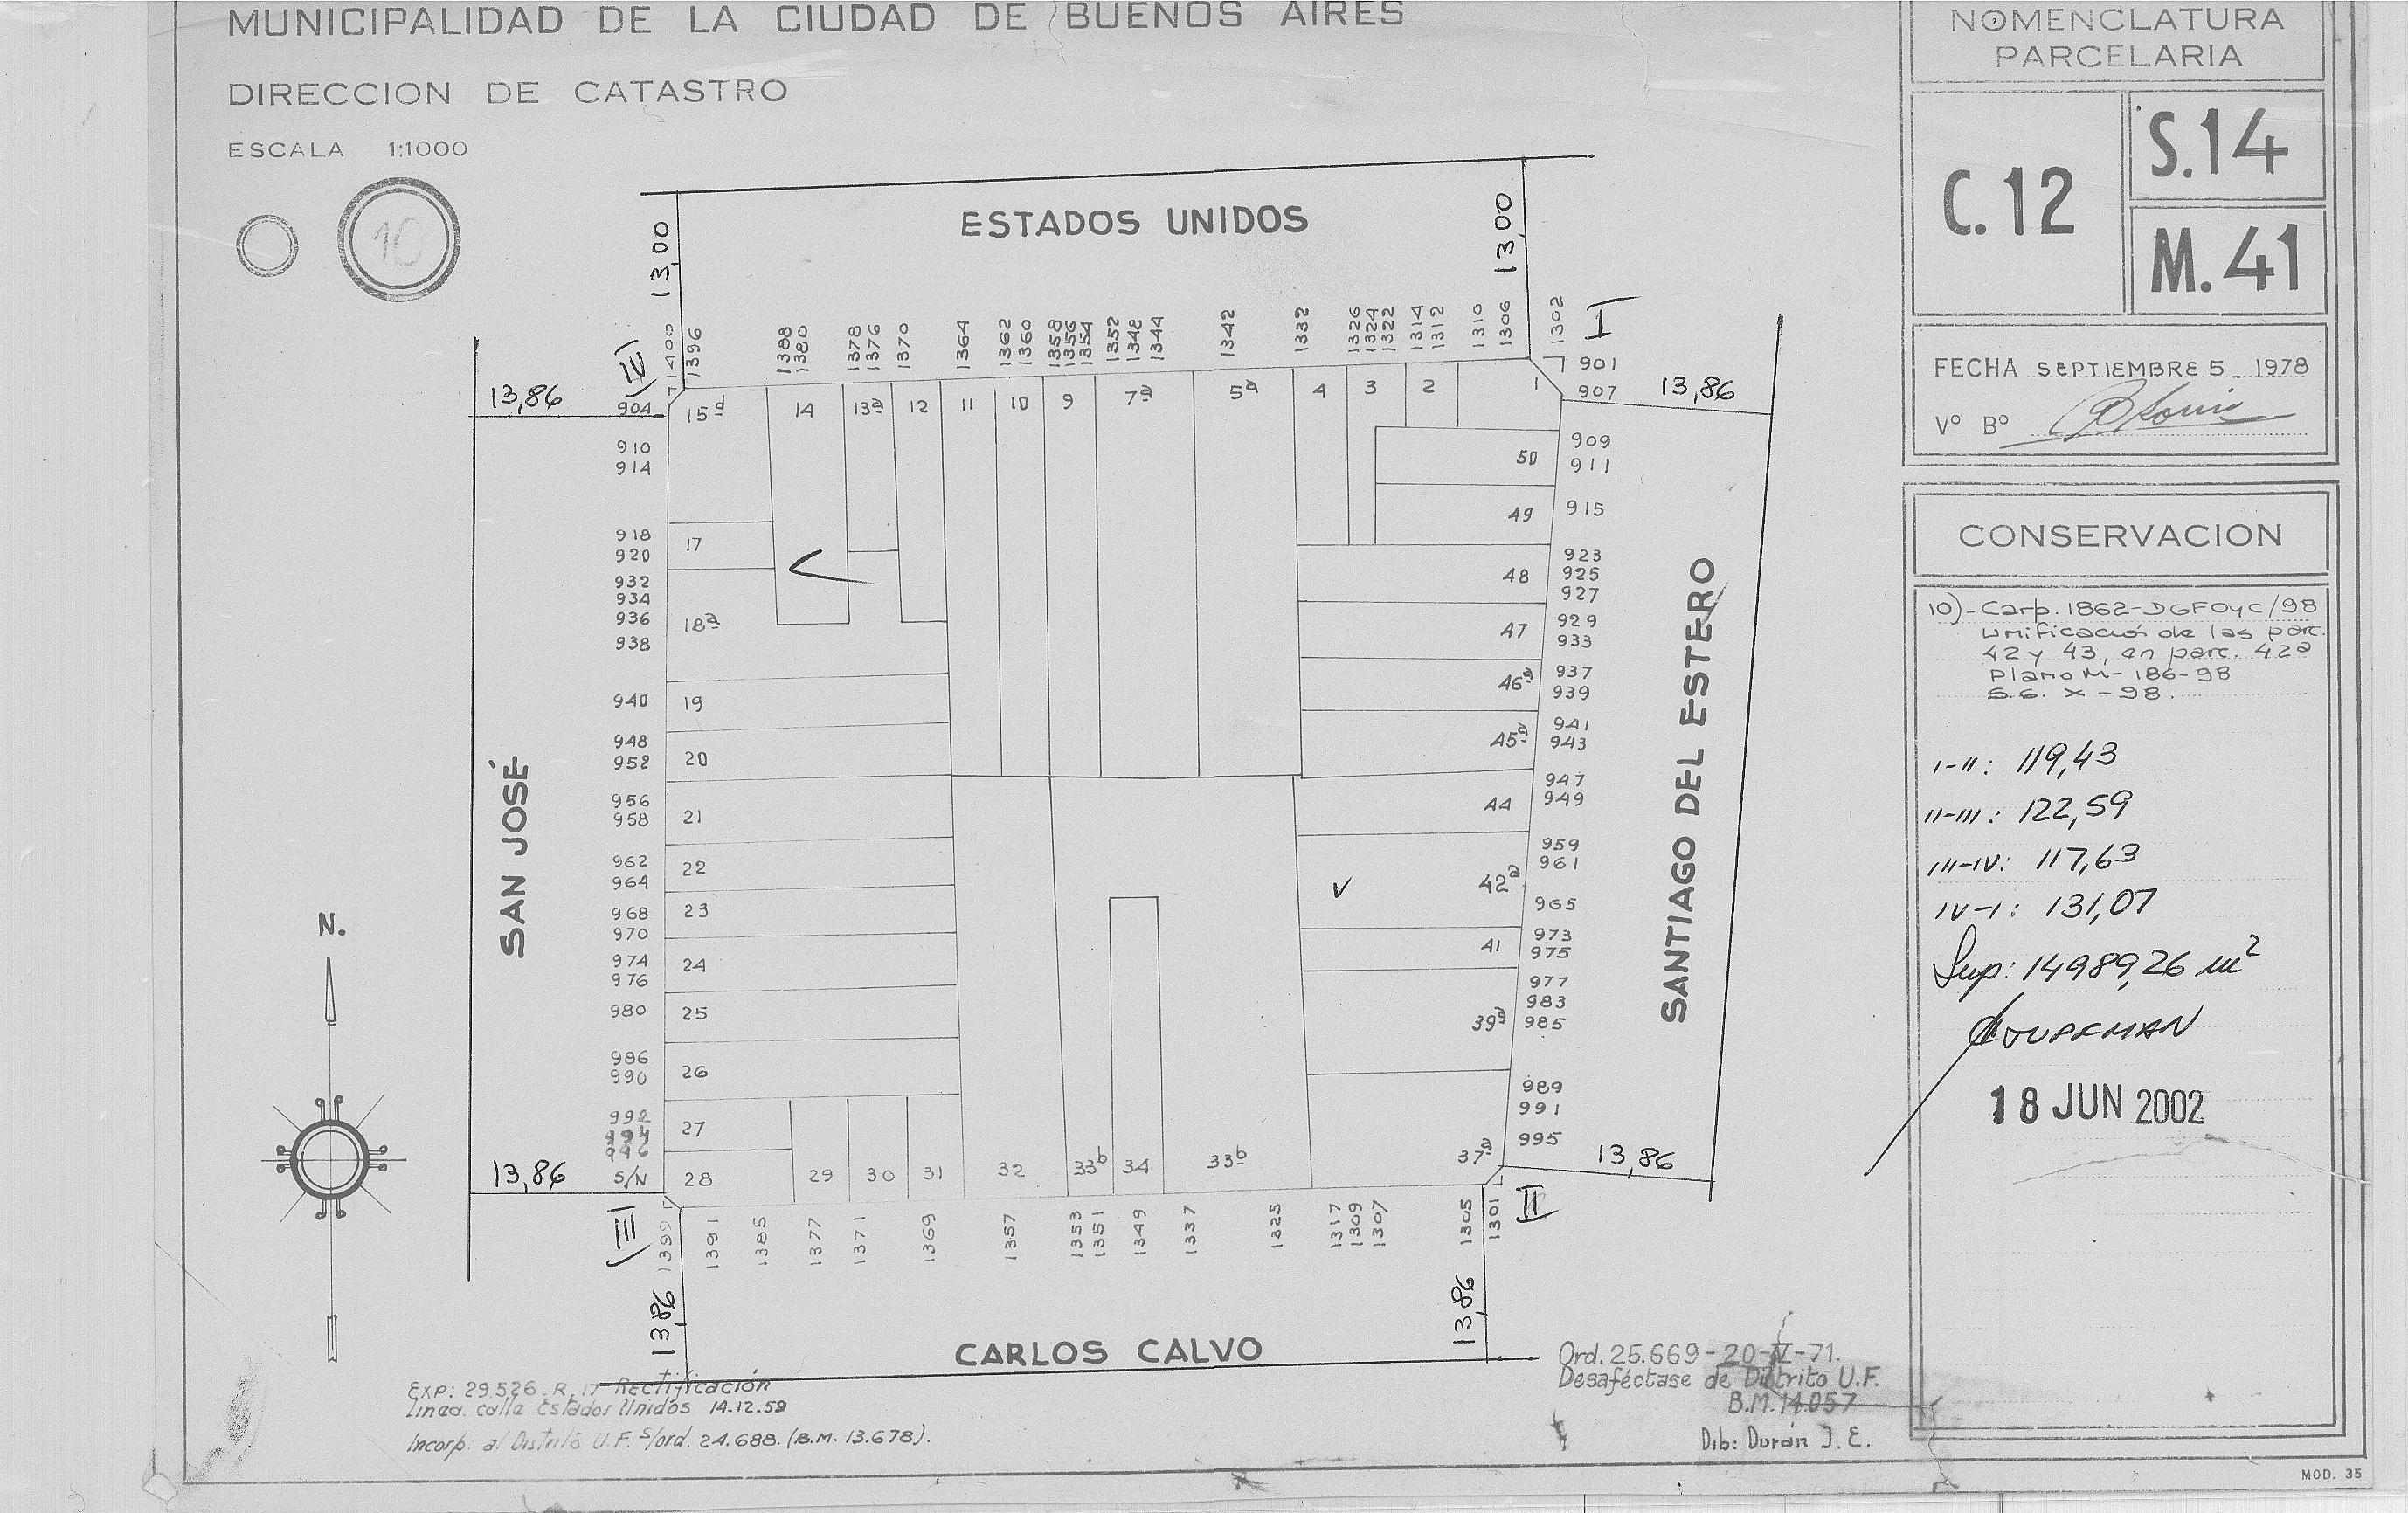 MUNICIPALIDAD DE LA CIUDAD DE BUENOS AIRES
DIRECCION DE CATASTRO
ESCALA 1:1000
10
NOMENCLATURA
PARCELARIA
C.12
S.14
M.41
FECHA SEPTIEMBRE 5 - 1978
Vº Bº
CONSERVACION
10)-Carp. 1862-DGFOyC/98
Unificación de las parc.
42 y 43, en parc. 42ª
Plano M-186-98
S.G. X-98.
I-II: 119,43
II-III: 122,59
III-IV: 117,63
IV-I: 131,07
Sup: 14989,26 m²
18 JUN 2002
ESTADOS UNIDOS
13,00
13,00
1400
1396
1388
1380
1378
1376
1370
1364
1362
1360
1358
1356
1354
1352
1348
1344
1342
1332
1326
1324
1322
1314
1312
1310
1306
1302
I
IV
13,86
13,86
15d
14
13ª
12
11
10
9
7ª
5ª
4
3
2
1
904
910
914
918
920
932
934
936
938
940
948
952
956
958
962
964
968
970
974
976
980
986
990
992
994
996
S/N
17
18ª
19
20
21
22
23
24
25
26
27
28
29
30
31
32
33b
34
33b
37ª
50
49
48
47
46ª
45ª
44
42ª
41
39ª
901
907
909
911
915
923
925
927
929
933
937
939
941
943
947
949
959
961
965
973
975
977
983
985
989
991
995
SAN JOSÉ
SANTIAGO DEL ESTERO
N.
13,86
13,86
III
II
1399
1391
1385
1377
1371
1369
1357
1353
1351
1349
1337
1325
1317
1309
1307
1305
1301
13,86
13,86
CARLOS CALVO
EXP: 29.526-R-17 Rectificación
Linea calle Estados Unidos 14.12.59
Incorp. al Distrito U.F. s/ord. 24.688. (B.M. 13.678).
Ord. 25.669-20-IV-71.
Desaféctase de Distrito U.F.
B.M. 14.057
Dib: Durán J. E.
MOD. 35